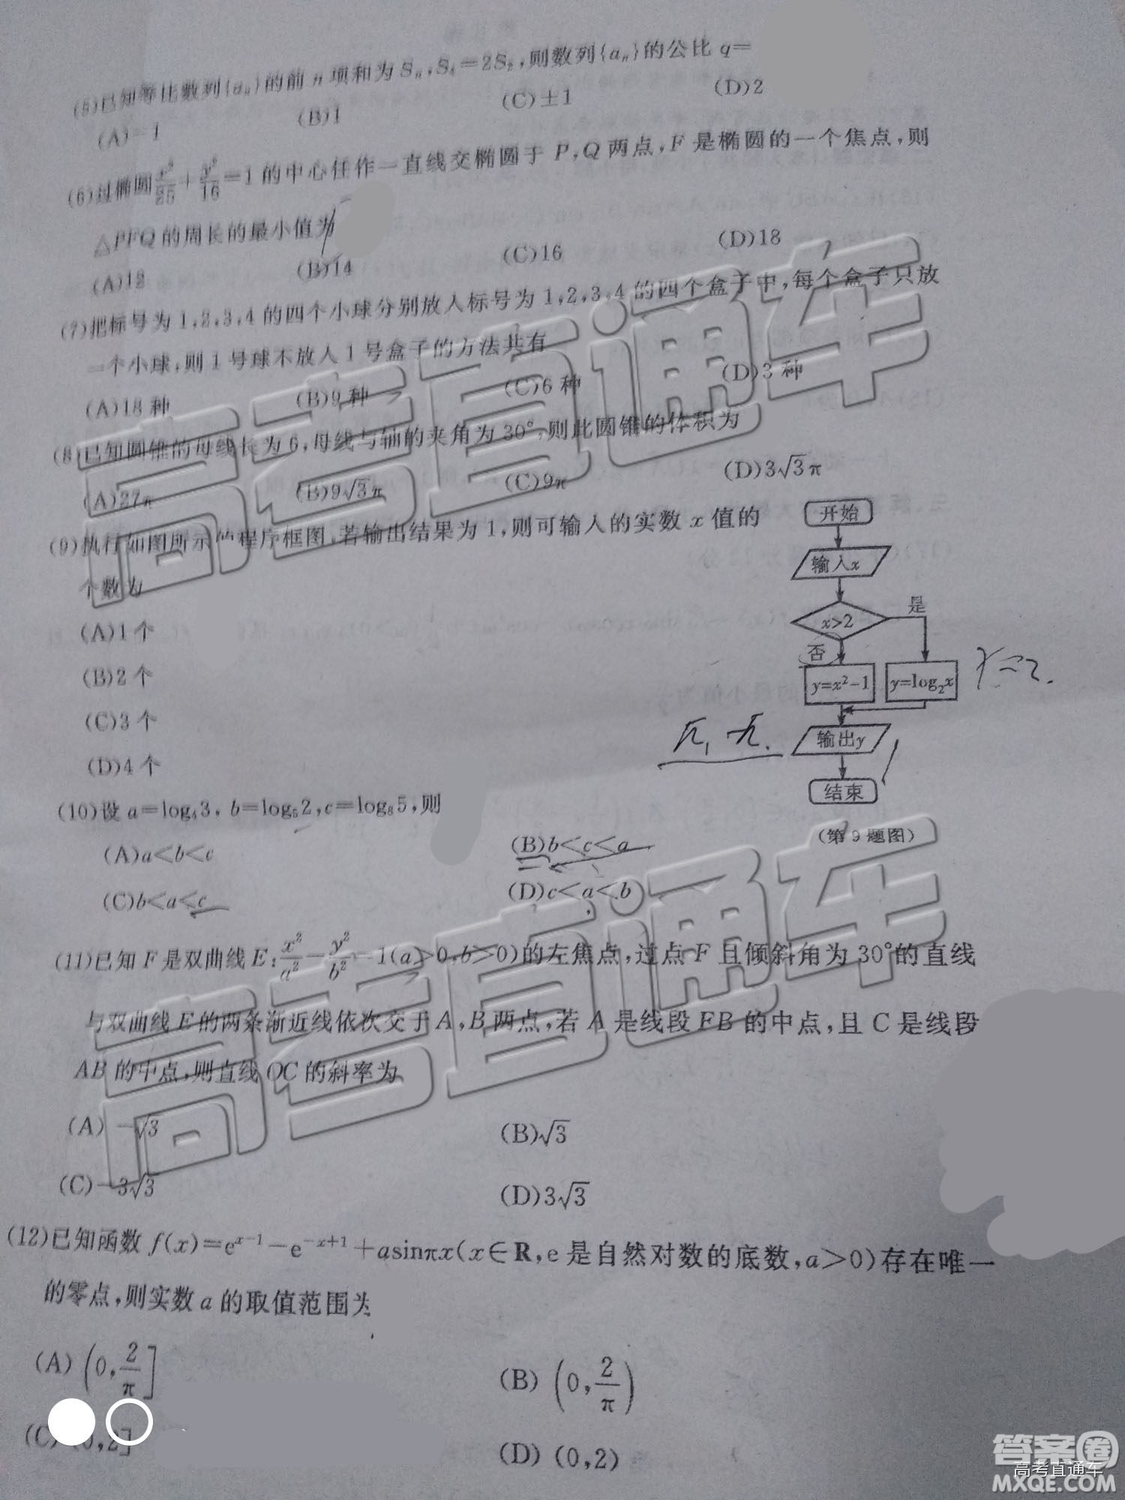 (5)已知等比数列{aₙ}的前 n 项和为 Sₙ,S₄=2S₂,则数列{aₙ}的公比 q=
(A)-1 (B)1 (C)±1 (D)2
(6)过椭圆x²/25+y²/16=1的中心任作一直线交椭圆于 P,Q 两点,F 是椭圆的一个焦点,则
△PFQ的周长的最小值为
(A)12 (B)14 (C)16 (D)18
(7)把标号为1,2,3,4的四个小球分别放入标号为1,2,3,4的四个盒子中,每个盒子只放
一个小球,则1号球不放入1号盒子的方法共有
(A)18种 (B)9种 (C)6种 (D)3种
(8)已知圆锥的母线长为6,母线与轴的夹角为30°,则此圆锥的体积为
(A)27π (B)9√3π (C)9π (D)3√3π
(9)执行如图所示的程序框图,若输出结果为1,则可输入的实数 x 值的
个数为
(A)1个
(B)2个
(C)3个
(D)4个
开始
输入x
x>2
是
否
y=x²-1
y=log₂x
输出y
结束
(第9题图)
(10)设 a=log₄3, b=log₅2,c=log₈5,则
(A)a<b<c (B)b<c<a
(C)b<a<c (D)c<a<b
(11)已知F是双曲线E:x²/a²-y²/b²=1(a>0,b>0)的左焦点,过点F且倾斜角为30°的直线
与双曲线E的两条渐近线依次交于A,B两点,若A是线段FB的中点,且C是线段
AB的中点,则直线OC的斜率为
(A)-√3 (B)√3
(C)-3√3 (D)3√3
(12)已知函数 f(x)=eˣ⁻¹-e⁻ˣ⁺¹+asinπx(x∈R,e是自然对数的底数,a>0)存在唯一
的零点,则实数a的取值范围为
(A)(0,2/π] (B)(0,2/π)
(C)(0,2] (D)(0,2)
高考直通车
高考直通车
答案圈
高考直通车
MXQE.COM